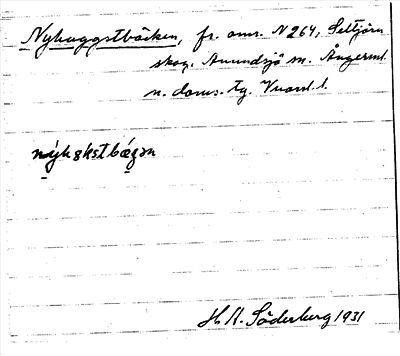 Nyhuggstbäcken, fr. oms. N 264, Seltjärn
skog. Anundsjö sn. Ångerml.
n. doms. tg. Vnorrl. l.
H. H. Söderberg 1931